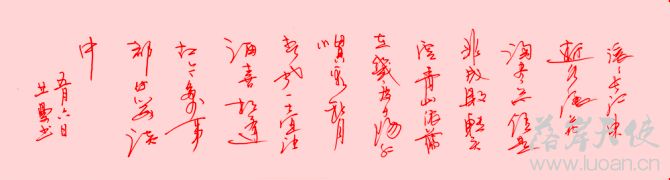 滚滚长江东
逝水浪花
淘尽英雄是
非成败转头
空青山依旧
在几度夕阳红
惯看秋月
春风一壶浊
酒喜相逢
古今多少事
都付笑谈
中
五月六日
书
落岸天使
www.luoan.cn